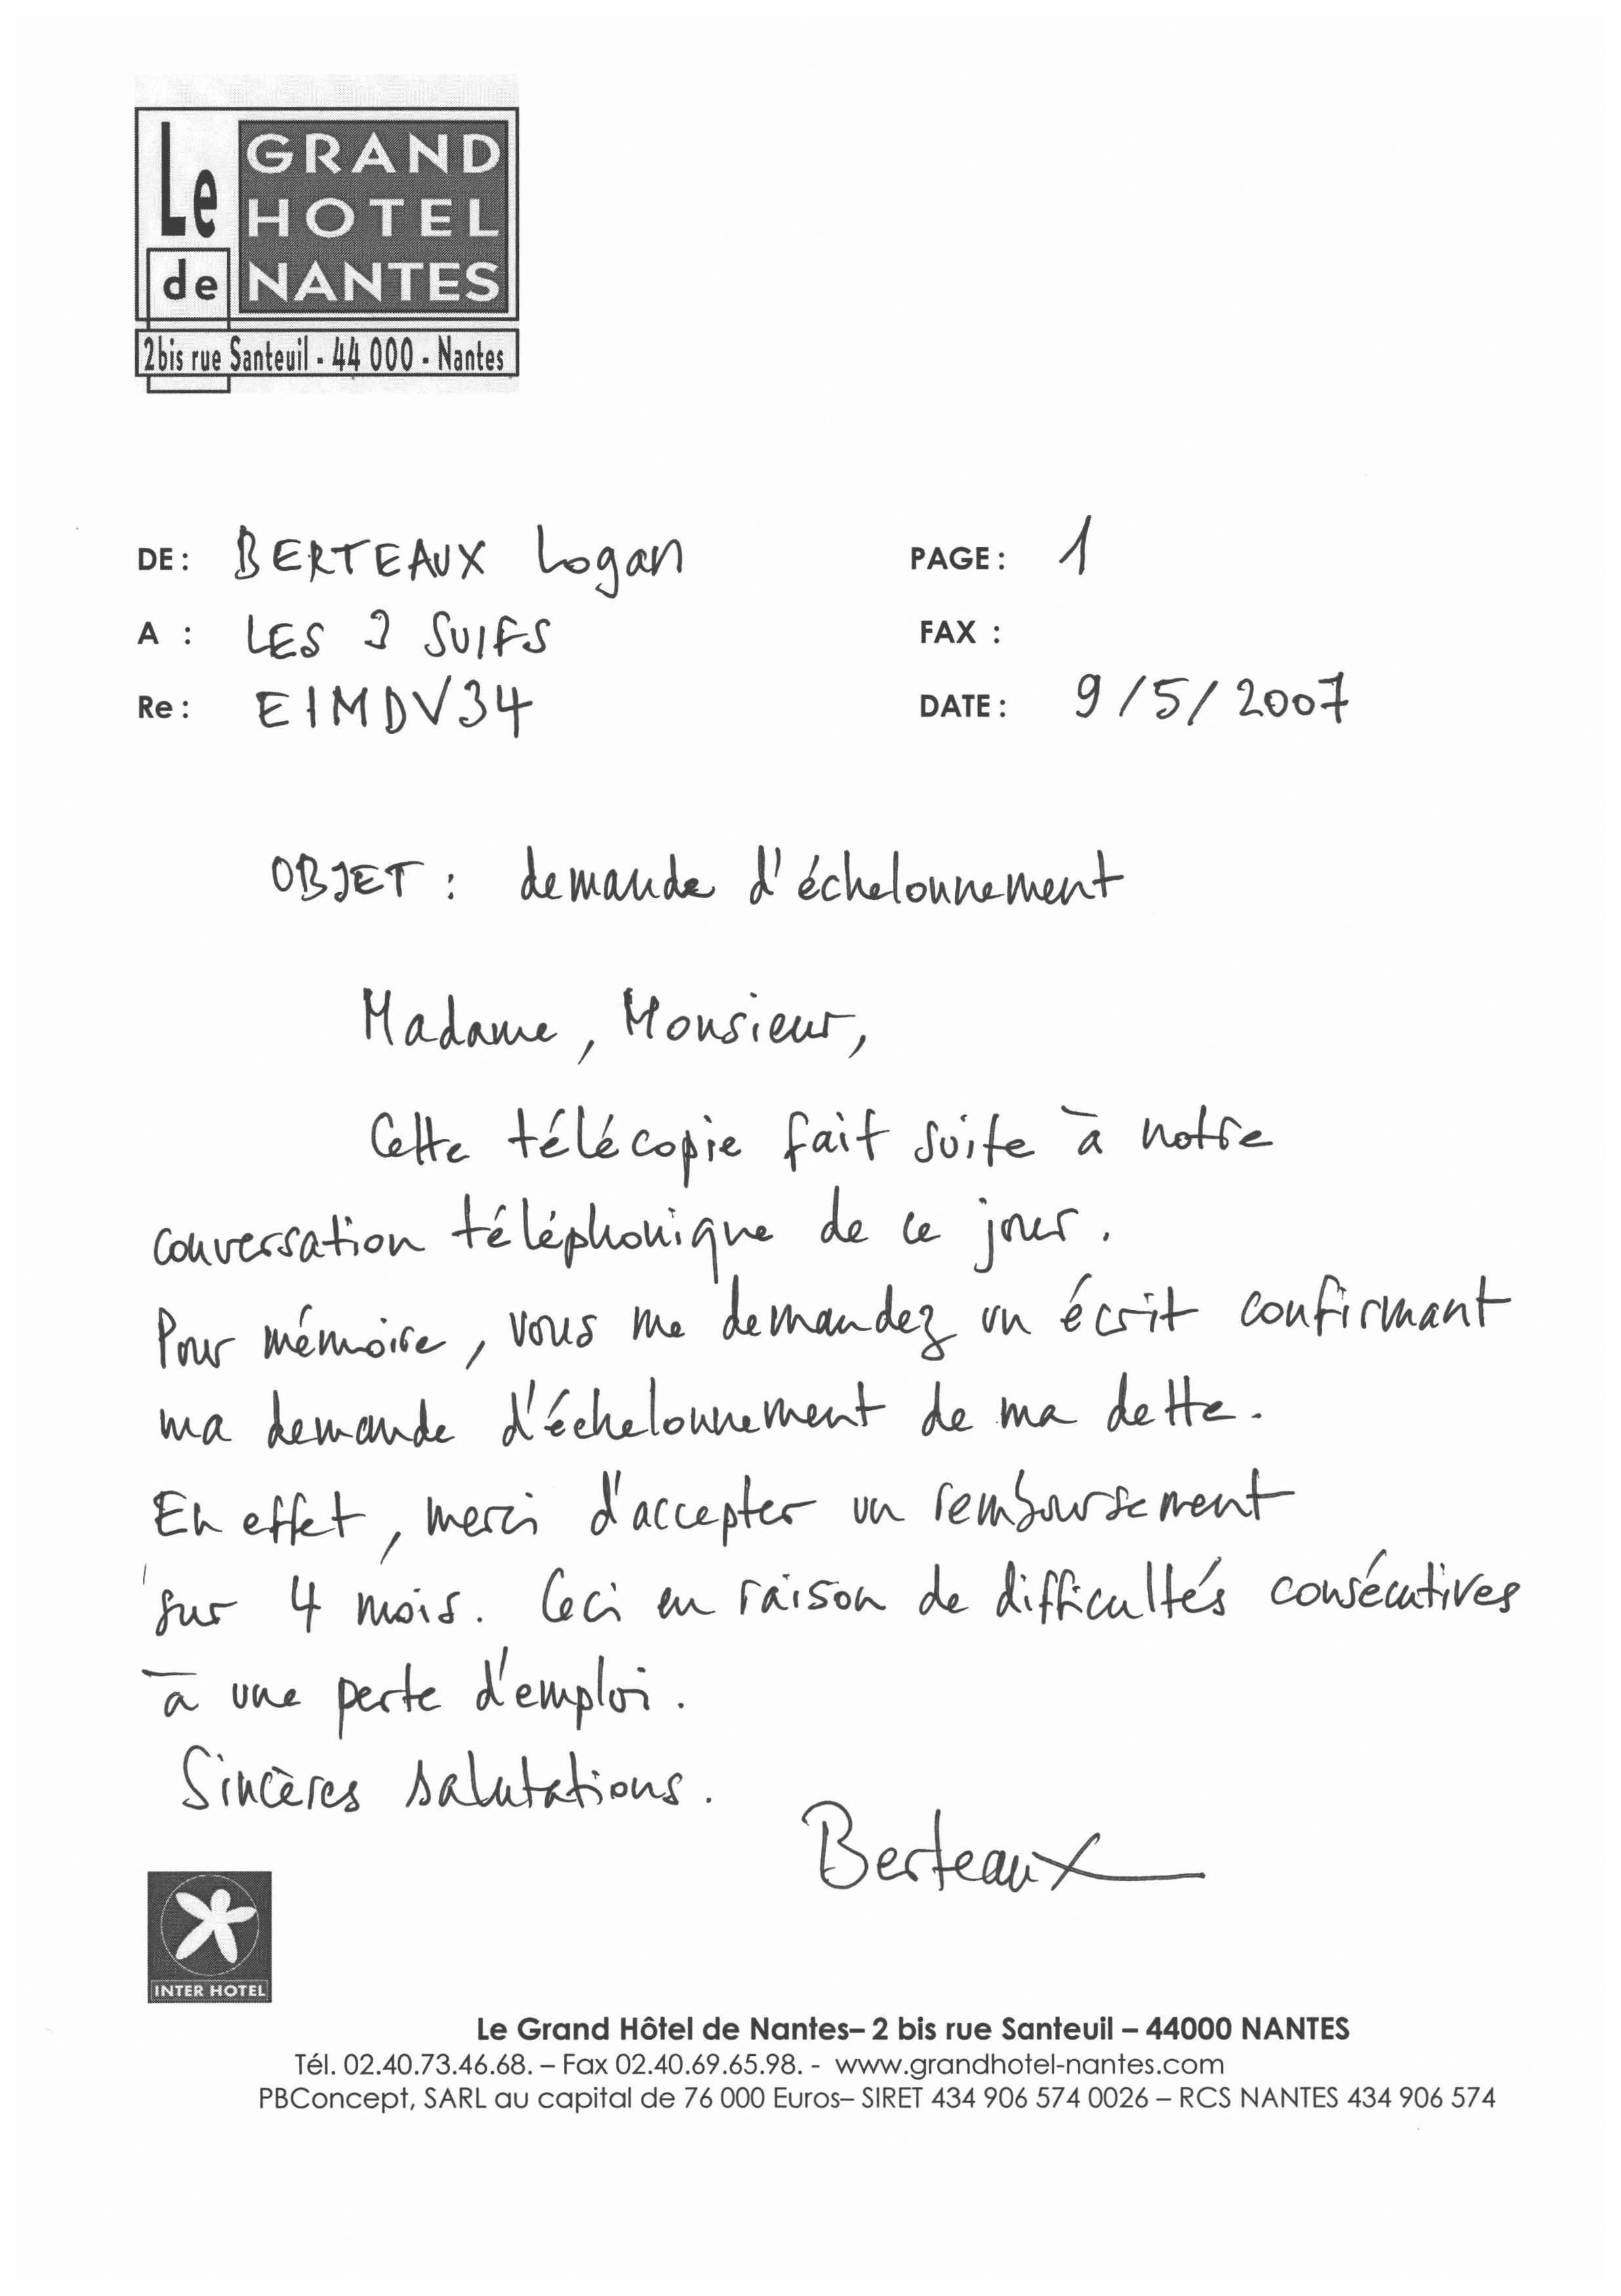 Le GRAND
HOTEL
de NANTES
2bis rue Santeuil - 44 000 - Nantes
DE : BERTEAUX Logan PAGE : 1
A : LES 3 SUIFS FAX :
Re : EIMDV34 DATE : 9/5/2007
OBJET : demande d'échelonnement
Madame, Monsieur,
Cette télécopie fait suite à notre
conversation téléphonique de ce jour.
Pour mémoire, vous me demandez un écrit confirmant
ma demande d'échelonnement de ma dette.
En effet, merci d'accepter un remboursement
sur 4 mois. Ceci en raison de difficultés consécutives
à une perte d'emploi.
Sincères salutations.
Berteaux
INTER HOTEL
Le Grand Hôtel de Nantes– 2 bis rue Santeuil – 44000 NANTES
Tél. 02.40.73.46.68. – Fax 02.40.69.65.98. - www.grandhotel-nantes.com
PBConcept, SARL au capital de 76 000 Euros– SIRET 434 906 574 0026 – RCS NANTES 434 906 574